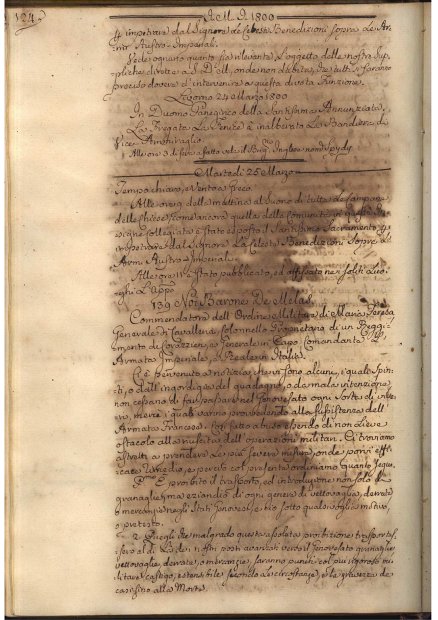 124.
A.M.D. 1800
impetrare dal Signore le Celesti Benedizioni sopra le Ar-
mi Austro-Imperiali.
Vede ognuno quanto sia rilevante l'oggetto delle nostre Sup-
pliche dirette a S. D. M., onde non dubito, che tutti si faranno
premura d'intervenire a questa divota Funzione.
Livorno 24 Marzo 1800
In Duomo Panegirico della Santissima Annunziata,
La Fregata La Fenice à inalberato la Bandiera di
Vice Ammiraglio.
Alle ore 3 di sera a fatto vela il Brig. Inglese nom. Spydy
Martedì 25 Marzo
Tempo chiaro, e Vento fresco.
Alle ore 9 della mattina al Suono di tutte le Campane
delle Chiese, come ancora quella della Comunità, in questa
insigne Collegiata è stato esposto il Santissimo Sacramento p
impetrare dal Signore la Celeste Benedizione Sopra le
Armi Austro Imperiali.
Alle ore 11 è stato pubblicato, ed affissato nei soliti Luo-
ghi
139 Noi Barone De Melas,
Commendatore dell'Ordine Militare di Maria Teresa
Generale di Cavalleria, Colonnello Proprietario di un Reggi-
mento di Corazzieri, e Generale in Capo Comandante l'
Armata Imperiale, e Reale in Italia.
È pervenuto a notizia, che vi sono alcuni, i quali Spin-
ti, o dall'ingordigia del guadagno, o da mala intenzione
non cessano di far passare nel Genovesato ogni Sorta di viveri,
merci, i quali vanno provvedendo alla Sussistenza dell'
Armata Francese. Tal fatto abuso essendo di non lieve
ostacolo alla riuscita dell'operazioni militari. Ci troviamo
astretti a prendere le più severe misure, onde porvi effi-
cace rimedio, e perciò col presente ordiniamo quanto segue.
P.mo È proibito il trasporto, ed introduzione non solo di
granaglie, ma eziandio di ogni genere di vettovaglia, derrate
e mercanzie negli Stati Genovesi, e ciò sotto qualsivoglia motivo,
o pretesto.
2. Quegli, che malgrado questa assoluta proibizione trasportas-
sero al di là dei nostri posti avanzati verso il Genovesato granaglie,
vettovaglie, derrate, o mercanzie, saranno puniti col più rigoroso mi-
litare castigo, estensibile secondo le circostanze, e la gravezza de
casi fino alla Morte.